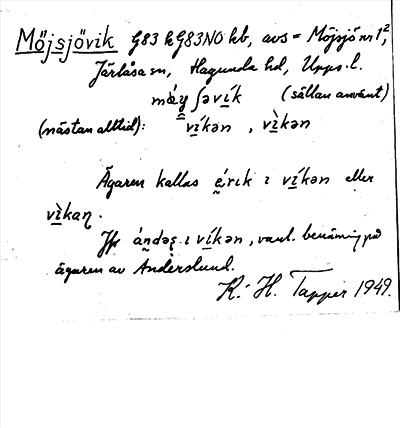 Möjsjövik G83 k G83NO kb, avs = Möjsjö nr 1²,
Järlåsa sn, Hagunda hd, Upps. l.
mǿy ʃəvík (sällan använt)
(nästan alltid): víkən, vìkən
Ägaren kallas éːrɪk ɪ víkən eller
vìkaɳ.
Jfr ándəʂ ɪ víkən, vanl. benämning på
ägaren av Anderslund.
K. H. Tapper 1949.